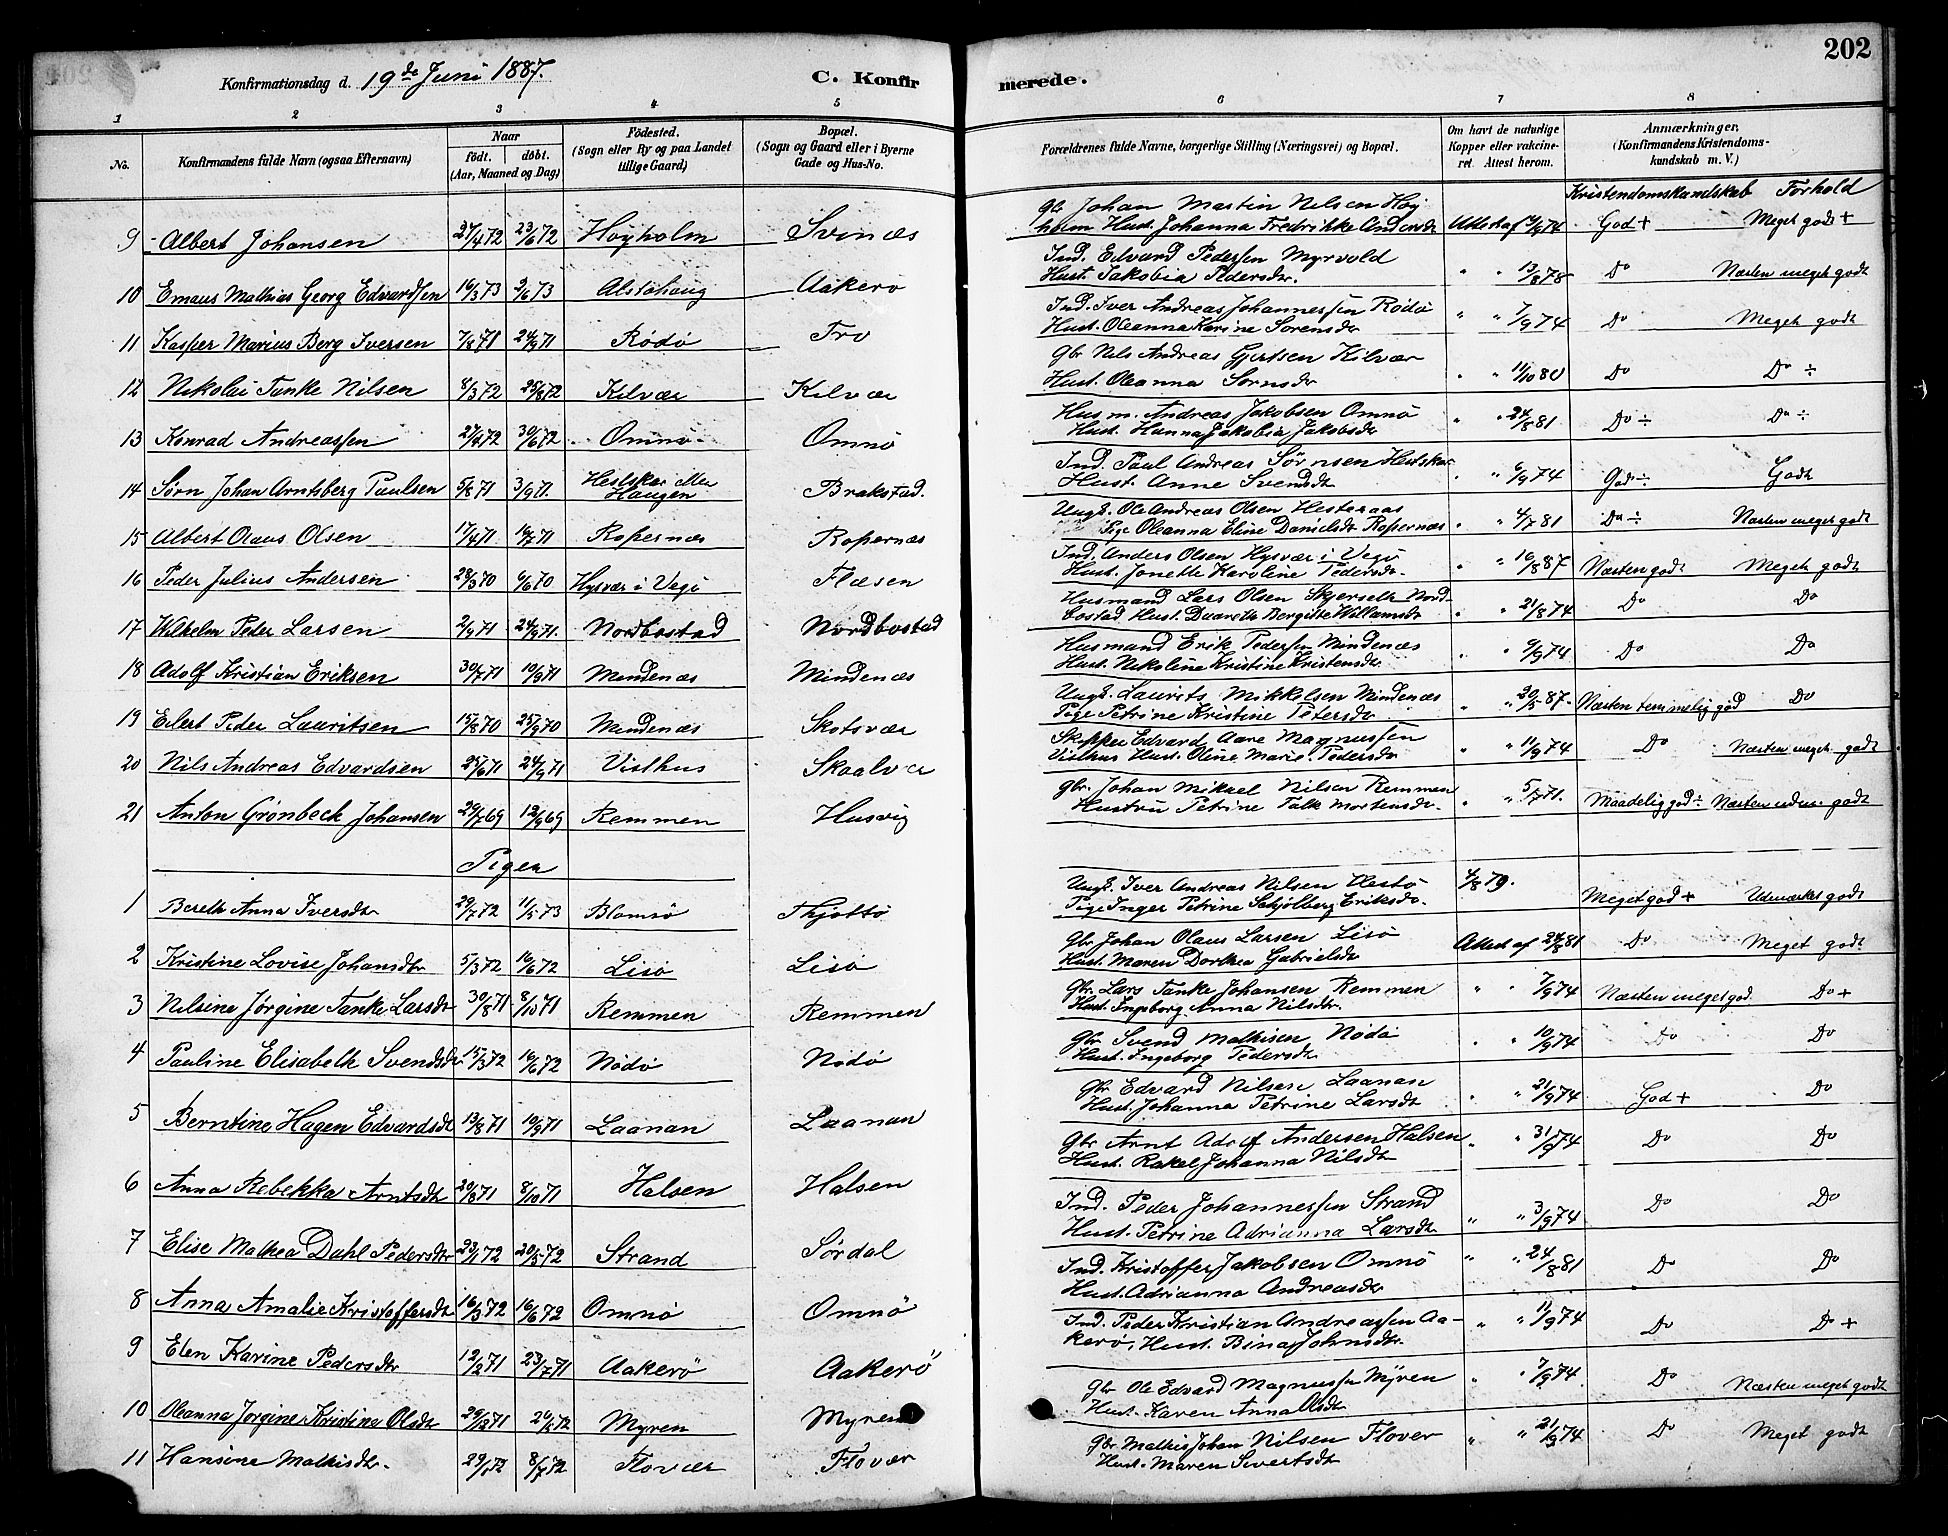 202
Konfirmationsdag d. 19de Juni 1887.
C. Konfir
merede.
1 2 3 4 5 6 7 8
No.
Konfirmandens fulde Navn (ogsaa Efternavn)
Naar
født. døbt.
(Aar, Maaned og Dag)
Fødested.
(Sogn eller By og paa Landet
tillige Gaard)
Bopæl.
(Sogn og Gaard eller i Byerne
Gade og Hus-No.
Forældrenes fulde Navne, borgerlige Stilling (Næringsvei) og Bopæl.
Om havt de naturlige
Kopper eller vakcine-
ret. Attest herom.
Anmærkninger.
(Konfirmandens Kristendoms-
kundskab m. V.)
Kristendomskundskab Forhold
9 Albert Johansen 27/4 72 23/6 72 Høyholm Svinæs
Gbr Johan Martin Nilsen Høy
holm Hust. Johanna Fredrikke Andersdt Attest af 74 God + Meget godt +
10 Emaus Mathias Georg Edvardsen 16/3 73 2/6 73 Alstahaug Aakerø
Ind. Edvard Pedersen Myrvold
Hust. Jakobia Pedersdtr. " " 13/8 78 Do Næsten meget godt
11 Kasper Marius Berg Iversen 7/8 71 24/9 71 Rødø Tro
Ind. Iver Andreas Johannessen Rødø
Hust. Oleanna Karine Sørensdr " " 7/9 74 Do Meget godt
12 Nikolai Tanke Nilsen 8/3 72 25/8 72 Kilvær Kilvær
Gbr Nils Andreas Gjertsen Kilvær
Hust. Oleanna Sørnsdr " " 11/10 80 Do Do ÷
13 Konrad Andreassen 27/4 72 30/6 72 Omnø Omnø
Husm. Andreas Jakobsen Omnø
Hust. Hanna Jakobia Jakobsdr " " 24/8 81 Do ÷ Do ÷
14 Sørn Johan Arntsberg Paulsen 5/8 71 3/9 71. Hestskar Haugen Brakstad.
Ind. Paul Andreas Sørnsen Hestskar
Hust. Anne Svendsdt " 6/9 74 God ÷ Godt
15 Albert Olaus Olsen 17/4 71. 16/7 71 Ropernæs Ropernæs
Ungk. Ole Andreas Olsen Hesteraas
Pige Oleanna Eline Danielsdt Ropernæs " " 4/7 81 Do ÷ Næsten meget godt
16 Peder Julius Andersen 28/3 70 6/6 70 Hysvær i Vegø Flæsen
Ind. Anders Olsen Hysvær i Vegø
Hust. Jonette Karoline Pedersdr. " " 16/8 87 Næsten godt Meget godt
17 Wilhelm Peder Larsen 2/9 71 24/9 71. Nordbostad Nordbostad
Husmand Lars Olsen Skjerseth Nord-
bostad Hust. Bergitte Willamsdr " " 21/8 74 Do Do
18 Adolf Kristian Eriksen 30/7 71 10/9 71 Mindenæs Mindenæs
Husmand Erik Pedersen Mindenæs
Hust. Nikoline Kristine Kristensdtr. " " 6/9 74 Do Do
19 Eilert Peder Lauritsen 15/8 70 25/9 70 Mindenæs Skotsvær
Ungk. Laurits Mikkelsen Mindenæs
Pige Petrine Kristine Petersdr " " 30/5 87. Næsten temmelig god Do
20 Nils Andreas Edvardsen 25/6 71 24/9 71 Visthus Skaalvær
Skipper Edvard Aare Magnussen
Visthus Hust. Oline Marie Pedersdr " " 11/9 74 Do Næsten meget godt
21 Anton Grønbeck Johansen 29/7 69 12/9 69 Remmen Husvig
Gbr. Johan Mikael Nilsen Remmen
Hustru Petrine Falk Mortensdr. " " 5/7 71. Maadelig god ÷ Næsten udm. godt
Piger
1 Bereth Anna Iversdtr 29/7 72 11/5 73 Blomsø Thjøttø
Ungk. Iver Andreas Nilsen Hestø
Pige Inger Petrine Schjølberg Eriksdr. 4/8 79. Meget god + Udmærket godt
2 Kristine Lovise Johansdtr 5/3 72 16/6 72 Lisø Lisø
Gbr Johan Olaus Larsen Lisø
Hust. Maren Dorthea Gabrielsdt Attest af 24/8 81 Do Meget godt
3 Nilsine Jørgine Tanke Larsdt 30/8 71 8/10 71 Remmen Remmen
Gbr Lars Tanke Johansen Remmen
Hust. Ingeborg Anna Nilsdtr. " " 7/9 74 Næsten meget god Do +
4 Pauline Elisabeth Svendsdt 15/3 72 16/6 72 Nødø Nødø
Gbr Svend Mathisen Nødø
Hust. Ingeborg Pedersdt " " 10/9 74 Do Do
5 Berntine Hagen Edvardsdt 13/8 71 10/9 71 Laanan Laanan
Gbr Edvard Nilsen Laanan
Hust. Johanna Petrine Larsdt " " 21/9 74 God + Do
6 Anna Rebekka Arntsdt 20/8 71 8/10 71 Halsen Halsen
Gbr Arnt Adolf Andersen Halsen
Hust. Rakel Johanna Nilsdt " " 74 Do Do
7 Elise Mathea Dahl Pedersdtr 23/1 72 20/5 72 Strand Sørdal
Ind. Peder Johannessen Strand
Hust. Petrine Adrianna Larsdtr " " 3/9 74 Do Do
8 Anna Amalie Kristoffersdt 16/3 72 16/6 72 Omnø Omnø
Ind. Kristoffer Jakobsen Omnø
Hust. Adrianna Andreasdr " " 24/8 81 Do Do
9 Elen Karine Pedersdtr 12/2 71 23/7 71 Aakerø Aakerø
Ind. Peder Kristian Andreassen Aa-
kerø, Hust. Bina Johnsdtr. " " 11/9 74 Do Do +
10 Oleanna Jørgine Kristine Olsdt 29/12 71 72 Myren Myren
Gbr Ole Edvard Magnussen Myren
Hust. Karen Anna Olsdt " " 7/9 74. Do Næsten meget godt
11 Hansine Mathisdtr. 29/1 72 8/7 72 Flovær Flovær
Gbr Mathis Johan Nilsen Flover
Hust. Maren Sivertsdt " " 21/9 74 Do Meget godt